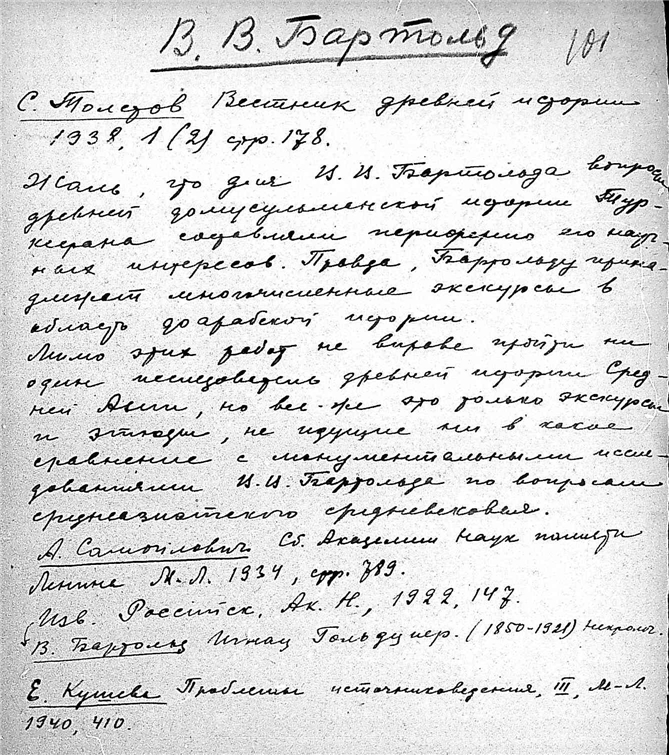 В. В. Бартольд
101
С. Толстов Вестник древней истории
1938, 1 (2) стр. 178.
Жаль, что для И. И. Бартольда вопросы
древней домусульманской истории Тур-
кестана составляли периферию его науч-
ных интересов. Правда, Бартольду прина-
длежат многочисленные экскурсы в
область доарабской истории.
Мимо этих работ не вправе пройти ни
один исследователь древней истории Сред-
ней Азии, но все-же это только экскурсы
и этюды, не идущие ни в какое
сравнение с монументальными иссле-
дованиями И. И. Бартольда по вопросам
среднеазиатского средневековья.
А. Самойлович Сб. Академии Наук памяти
Ленина М.-Л. 1934, стр. 789.
Изв. Российск. Ак. Н., 1922, 147.
В. Бартольд Игнац Гольдциер. (1850-1921) Некролог.
Е. Кушева Проблемы источниковедения, III, М-Л.
1940, 410.